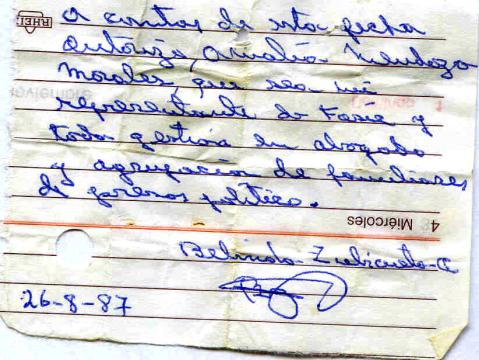 A contar de esta fecha
autorizo, Amalia Mendoza
Morales, que sea mi
representante de Fasic y
toda gestión en abogado
y agrupación de familiares
de presos político.
4 Miércoles
Belinda-Zubicueta-C
26-8-87